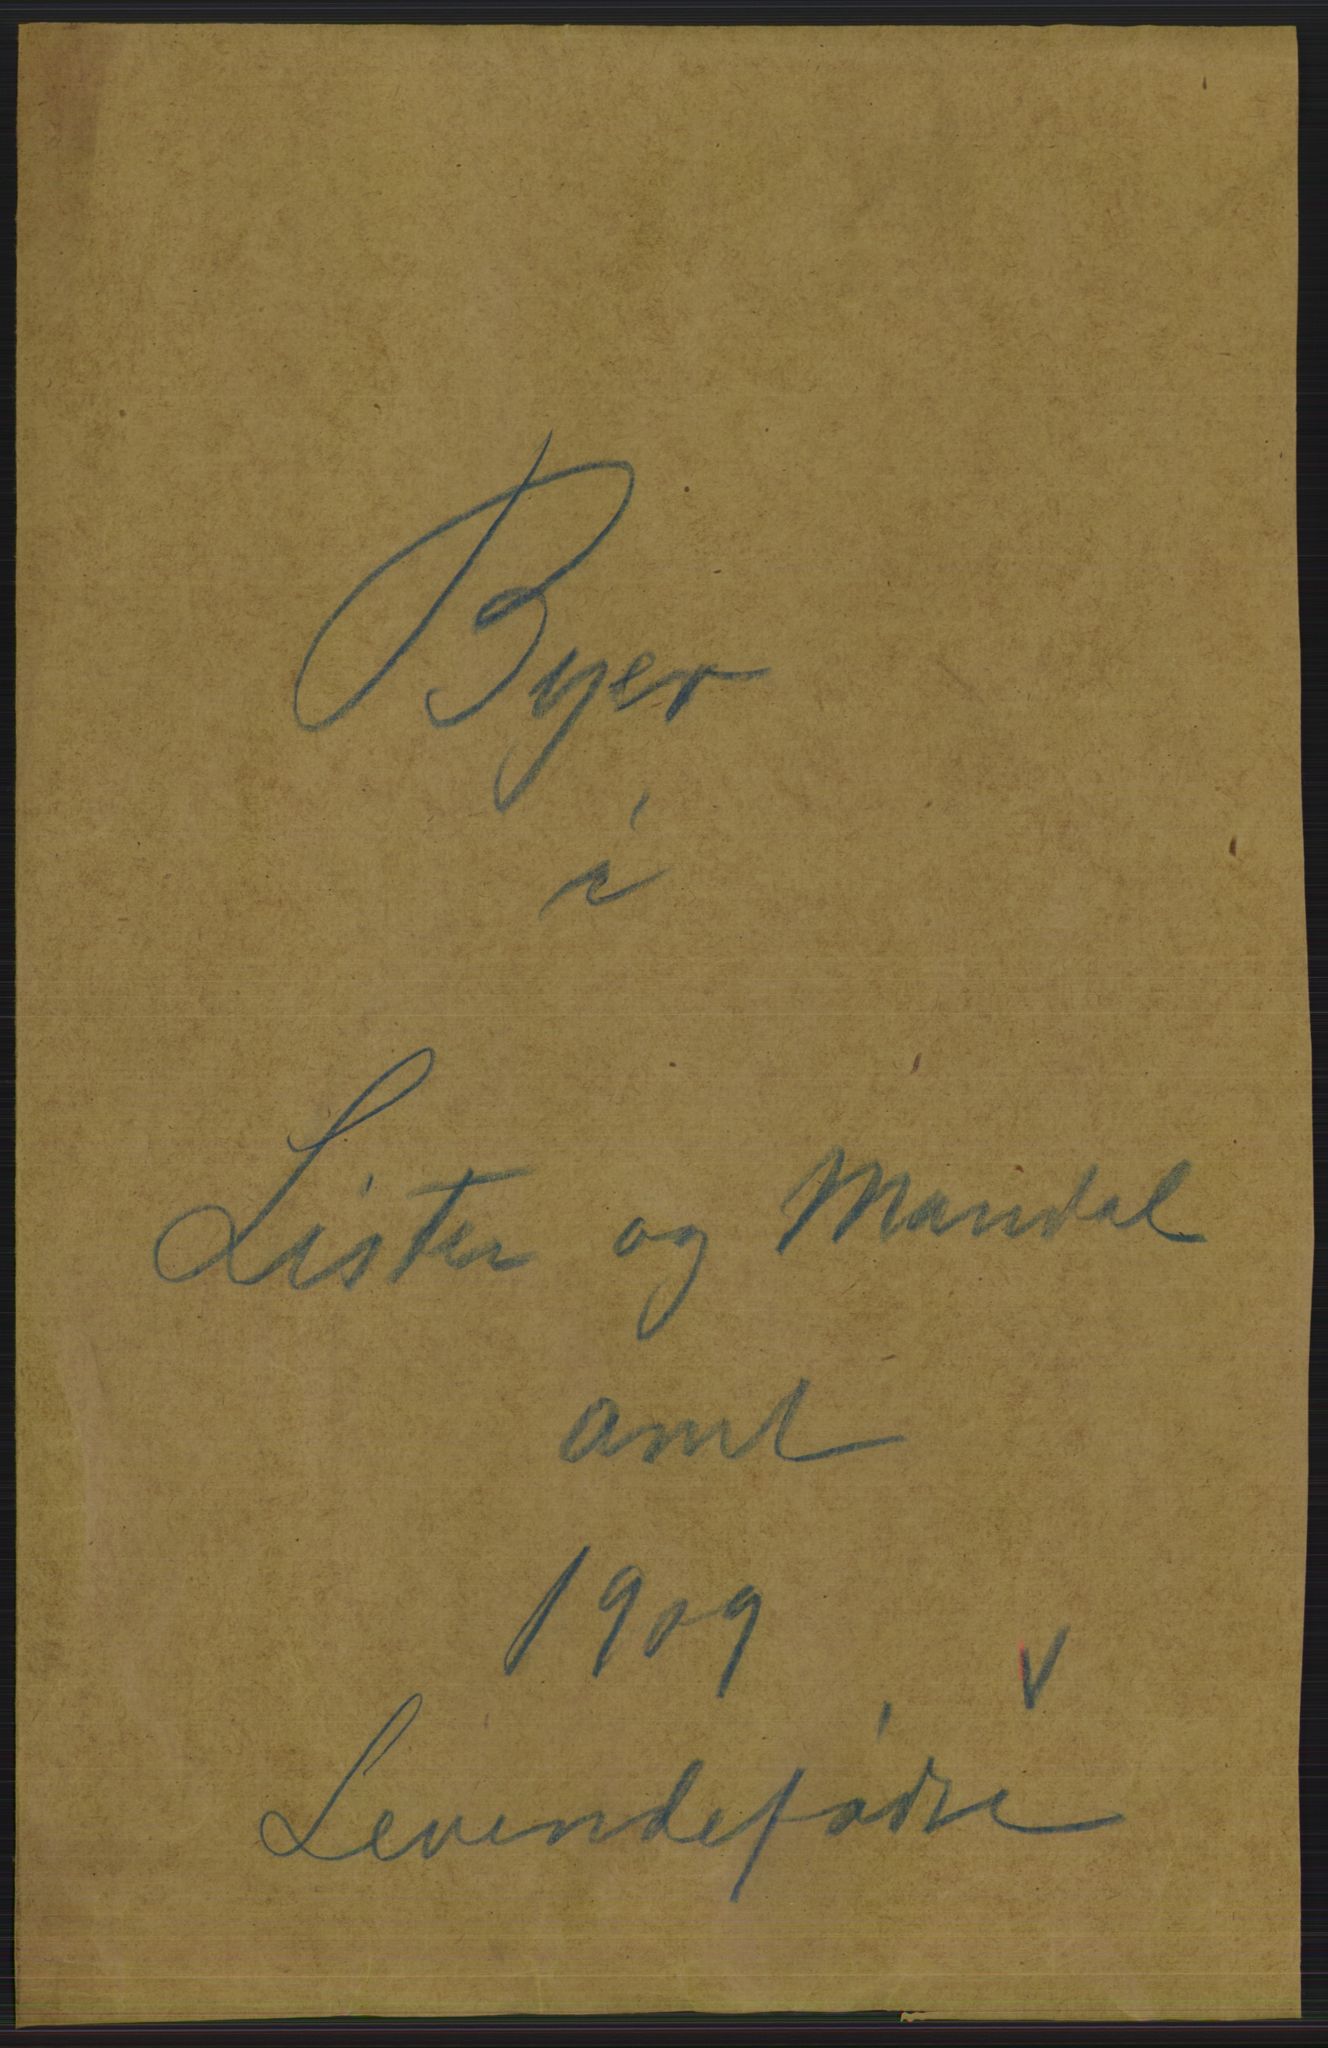 Byer
i
Lister og Mandal
amt
1909
V
Levendefødte